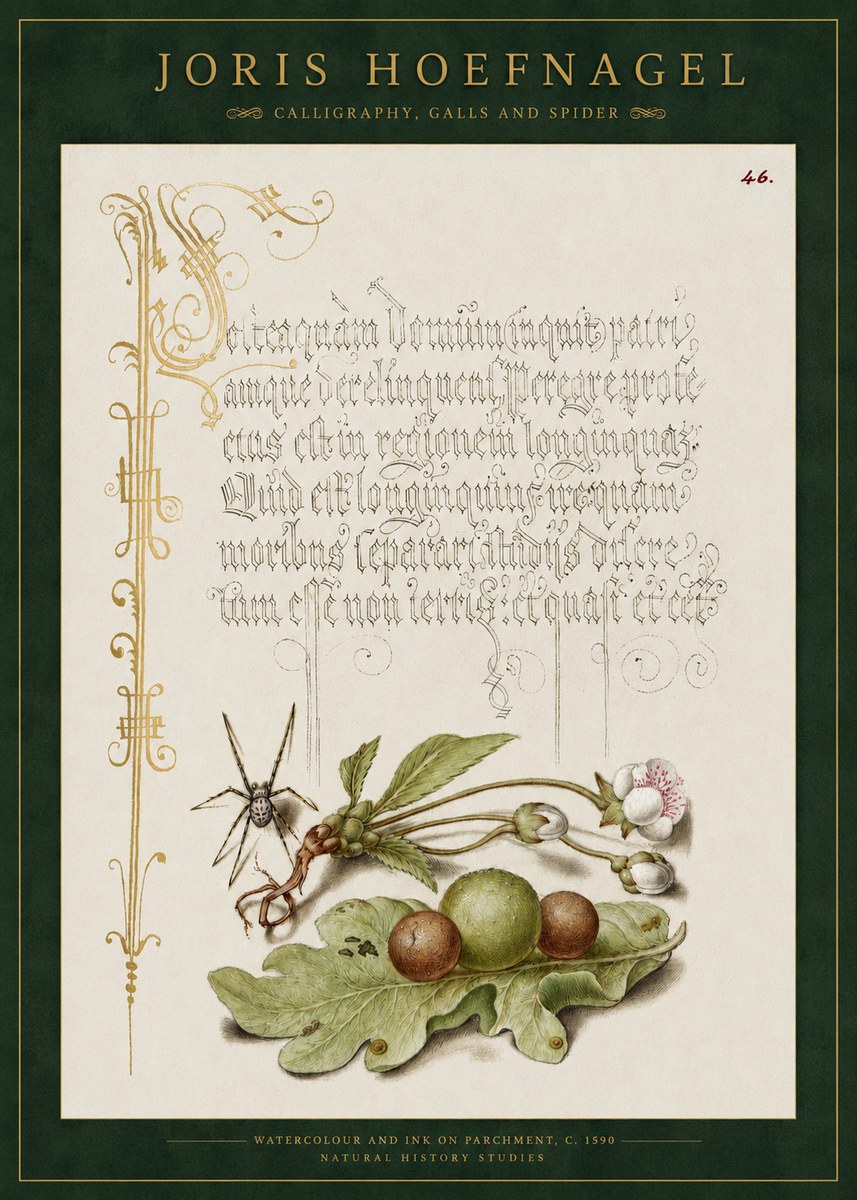 JORIS HOEFNAGEL
CALLIGRAPHY, GALLS AND SPIDER
46.
Domum (inquit) patri
amque derelinquens, Peregre profe=
ctus est in regionem
Quid est longinquius ire quam
moribus separari, studijs discre
tum esse non terris: et quasi et cet
WATERCOLOUR AND INK ON PARCHMENT, C. 1590
NATURAL HISTORY STUDIES